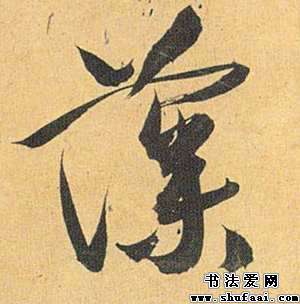 藻
书法爱网
www.shufaai.com